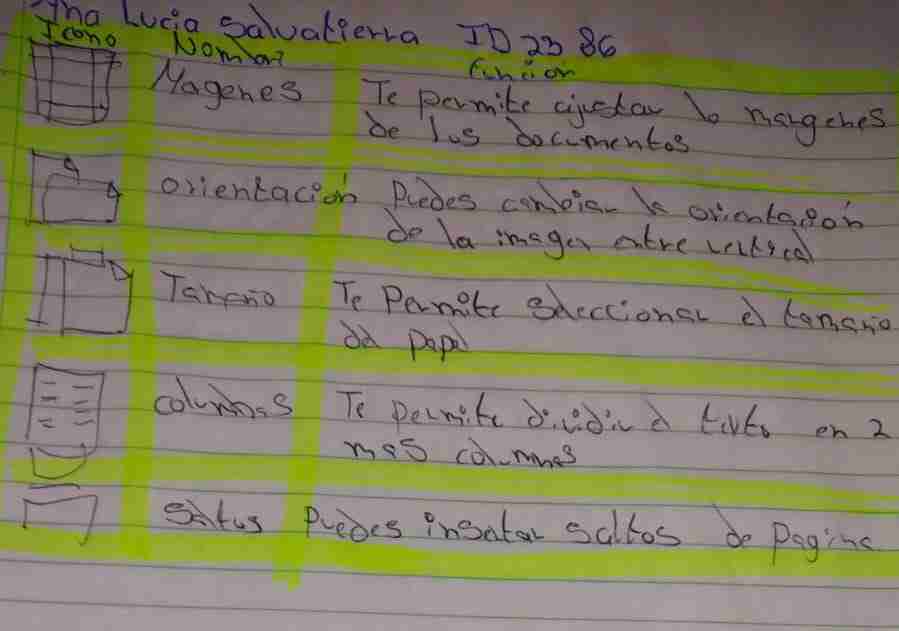 Ana Lucia Salvatierra ID 23 86
Icono Nombr Función
Magenes Te permite ajustar lo margenes
de los documentos
orientación Puedes cambiar la orientación
de la imagen entre vertical
Tamaño Te Permite seleccionar el tamaño
del papel
columnas Te permite dividir el texto en 2
mas columnas
Saltos Puedes insetar saltos de pagina